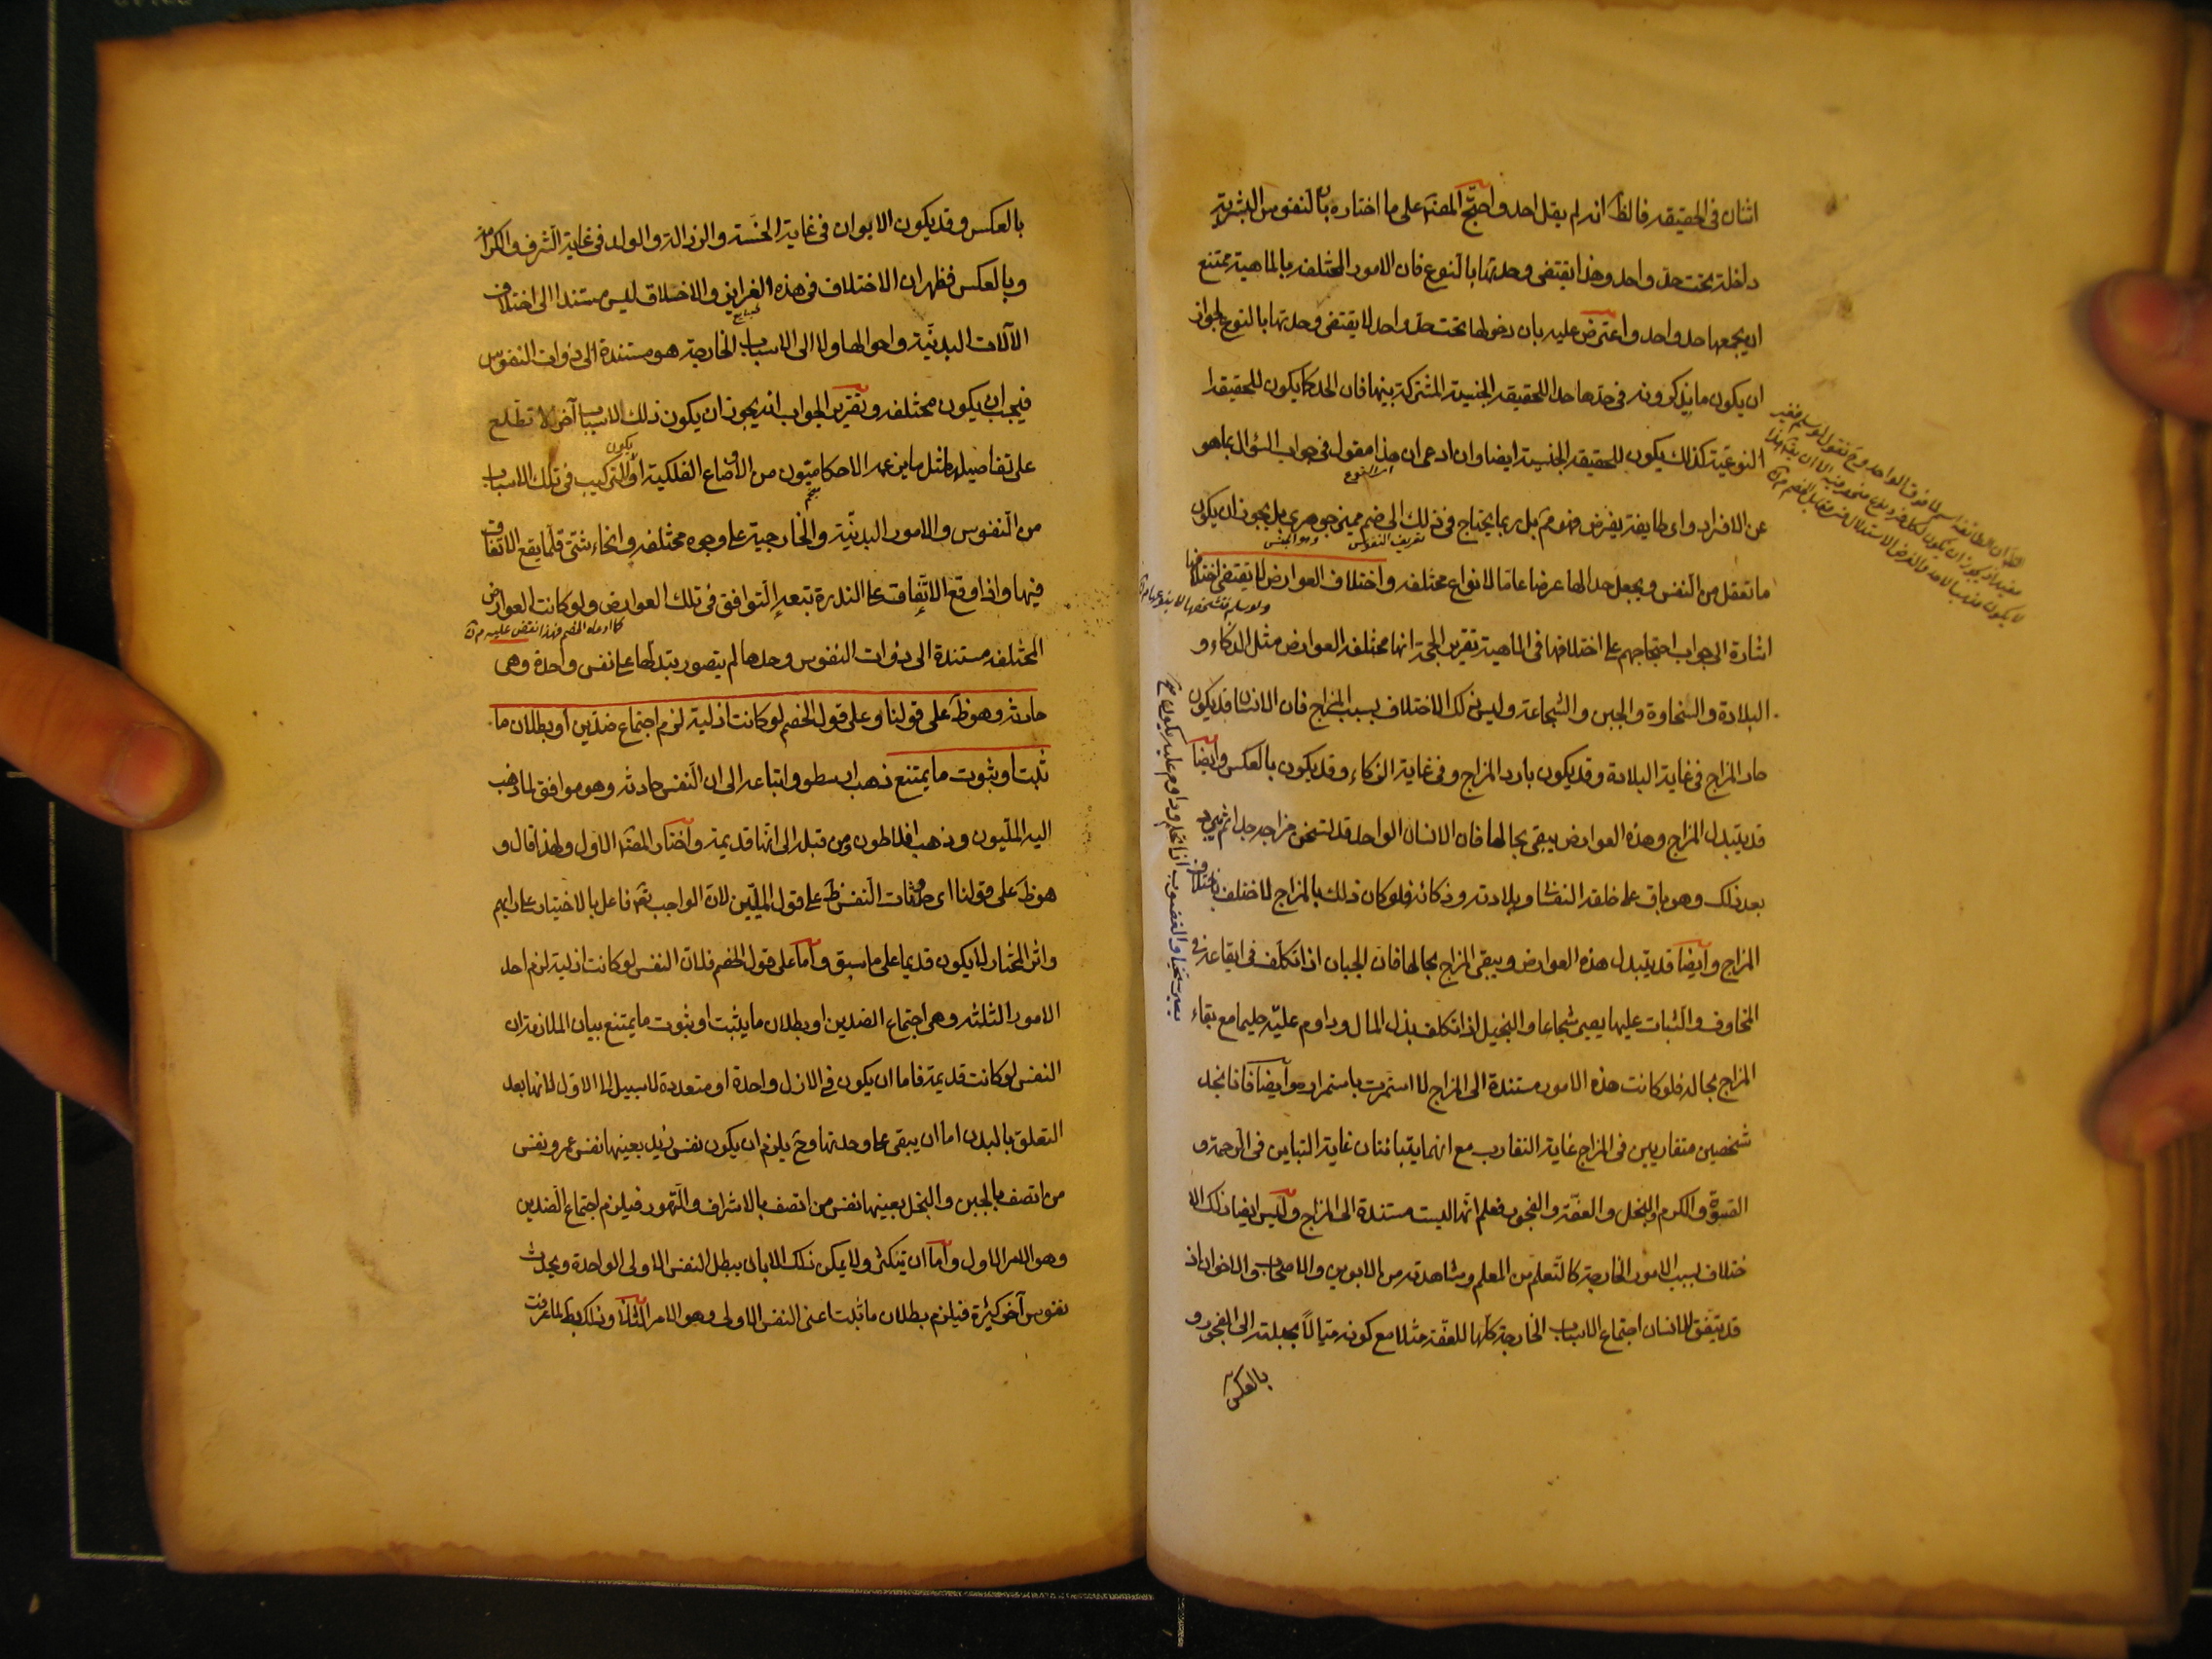 اثنان فى الحقيقة فالظ انه لم يقل احد واحتج المص على ما اختاره بان النفوس البشرية
داخلة تحت حد واحد وهذا يقتضى وحدتها بالنوع فان الامور المختلفة بالماهية يمتنع
ان يجمعها حد واحد واعترض عليه بان دخولها تحت حد واحد لا يقتضى وحدتها بالنوع لجواز
ان يكون ما يذكرونه فى حدها حدا للحقيقة الجنسية المشتركة بينها فان الحد كما يكون للحقيقة
النوعية كذلك يكون للحقيقة الجنسية ايضا وان ادعى ان هذا مقول فى جواب السؤال بما هو
عن الافراد واى طايفة يفرض فهو مم بل ربما يحتاج فى ذلك الى ضم مميز جوهرى بل يجوز ان يكون
ما تعقل من النفس ويجعل حدا لها عرضا عاما لانواع مختلفة واختلاف العوارض لا يقتضى اختلافها
اشارة الى جواب احتجاجهم على اختلافها فى الماهية تقرير الحجة انها مختلفة العوارض مثل الذكاء و
البلادة والسخاوة والجبن والشجاعة وليس ذلك الاختلاف بسبب المزاج فان الانسان قد يكون
حار المزاج فى غاية البلادة وقد يكون بارد المزاج وفى غاية الذكاء وقد يكون بالعكس وايضا
قد يتبدل المزاج وهذه العوارض يبقى بحالها فان الانسان الواحد قد تسخن مزاجه جدا ثم يبرد
بعد ذلك وهو باق على خلقه النفسانى وبلادته وذكائه فلو كان ذلك بالمزاج لاختلف باختلاف
المزاج وايضا قد يتبدل هذه العوارض ويبقى المزاج بحالها فان الجبان اذا تكلف فى ايقاعه فى
المخاوف والثبات عليها يصير شجاعا والبخيل اذا تكلف بذل المال وداوم عليه حليما مع بقاء
المزاج بحاله فلو كانت هذه الامور مستندة الى المزاج لاستمرت باستمراره وايضا فانا نجد
شخصين متقاربين فى المزاج غاية التقارب مع انهما يتباينان غاية التباين فى الرحمة و
القسوة والكرم والبخل والعفة والفجور فعلم انها ليست مستندة الى المزاج وليس ايضا ذلك الا
ختلاف بسبب الامور الخارجة كالتعلم من المعلم ومشاهدته من الابوين والاصحاب والاخوان اذ
قد يتفق للانسان اجتماع الاسباب الخارجة كلها للعفة مثلا مع كونه ميالا بجبلته الى الفجور و
بالعكس
بالعكس وقد يكون الابوان فى غاية الخسة والرذالة والولد فى غاية الشرف والكرامة
وبالعكس فظهر ان الاختلاف فى هذه الغرايز والاخلاق ليس مستندا الى اختلاف
الآلات البدنية واحوالها ولا الى الاسباب الخارجة هو مستندة الى ذوات النفوس
فيجب ان يكون مختلفة وتقرير الجواب انه يجوز ان يكون ذلك لاسباب آخر لا تطلع
على تفاصيلها مثل ما يزعمه الاحكاميون من الاوضاع الفلكية او التركيب فى تلك الاسباب
يكون
من النفوس والامور البدنية والخارجية على وجوه مختلفة وانحاء شتى قلما يقع الاتفاق
فيها واذا وقع الاتفاق على الندرة تبعه التوافق فى تلك العوارض ولو كانت العوارض
كما ادعاه الخصم فهذا نقض عليه
المختلفة مستندة الى ذوات النفوس وحدها لم يتصور تبدلها على نفس واحدة وهى
حادثة وهو ظ على قولنا وعلى قول الخصم لو كانت ازلية لزم اجتماع ضدين او بطلان ما
ثبت او ثبوت ما يمتنع ذهب ارسطو واتباعه الى ان النفس حادثة وهو موافق لما ذهب
اليه المليون وذهب افلاطون ومن قبله الى انها قديمة واختار المص الاول ولهذا قال و
هو ظ على قولنا اى حدوث النفس ظ على قول المليين لان الواجب تعه فاعل بالاختيار على رايهم
واثر المختار لا يكون قديما على ما سبق واما على قول الخصم فلان النفس لو كانت ازلية لزم احد
الامور الثلثة وهى اجتماع الضدين او بطلان ما يثبت او ثبوت ما يمتنع بيان الملازمة ان
النفس لو كانت قديمة فاما ان يكون فى الازل واحدة او متعددة لا سبيل الى الاول لانها بعد
التعلق بالبدن اما ان يبقى على وحدتها وح يلزم ان يكون نفس زيد بعينها نفس عمرو ونفس
من اتصف بالجبن والبخل بعينها نفس من اتصف بالاشراف والتهور فيلزم اجتماع الضدين
وهو الامر الاول واما ان يتكثر ولا يمكن ذلك الا بان يبطل النفس الاولى الواحدة ويحدث
نفوس آخر كثيرة فيلزم بطلان ما ثبت اعنى النفس الاولى وهو الامر الثانى وذلك بط لما عرفت